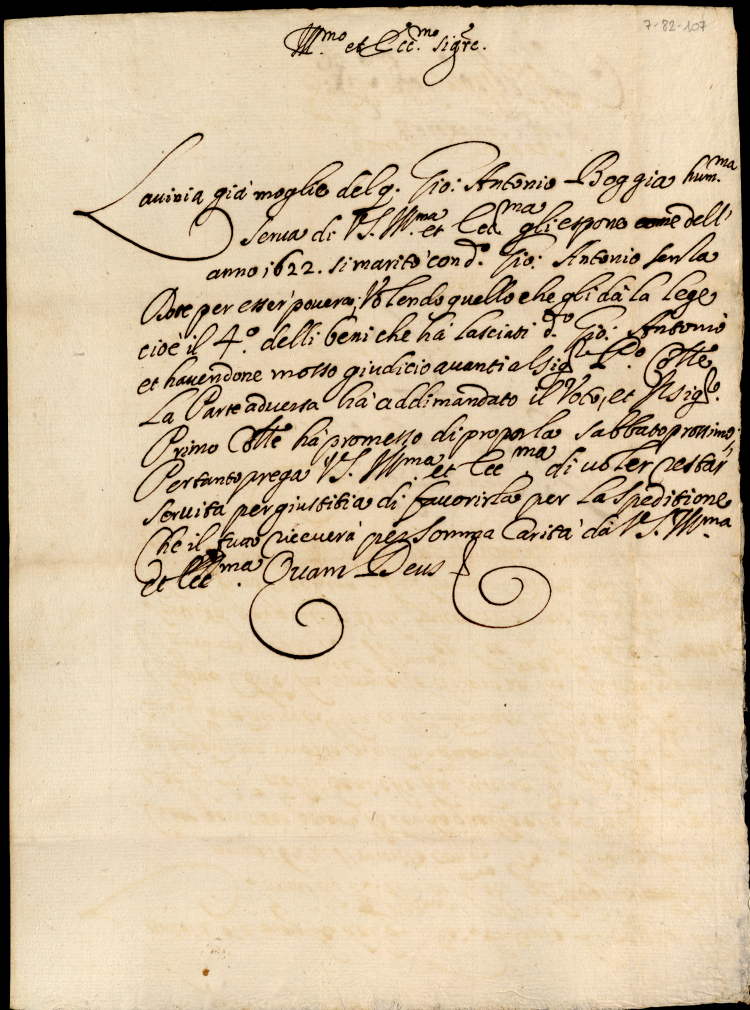 7-82-107
Ill.mo et Ecc.mo sig.re
Lavinia già moglie del q. Gio: Antonio Boggia hum.ma
serva di V.S. Ill.ma et Ecc.ma gli espone come dell'
anno 1622. si maritò con d.o Gio: Antonio senza
Dote per esser povera; Volendo quello che gli dà la lege
cioè il 4.o delli beni che hà lasciati d.to Gio: Antonio
et havendone mosso giudicio avanti al sig.r P.o Cotte
La Parte adversa hà addimandato il Voto, et Il sig.r
Primo Cotte hà promesso di proporla sabbato prossimo;
Pertanto prega V.S. Ill.ma et Ecc.ma di voler restar
servita per giustitia di favorirla per la speditione
Che il tutto riceverà per somma Carità dà V.S. Ill.ma
et Ecc.ma Quam Deus